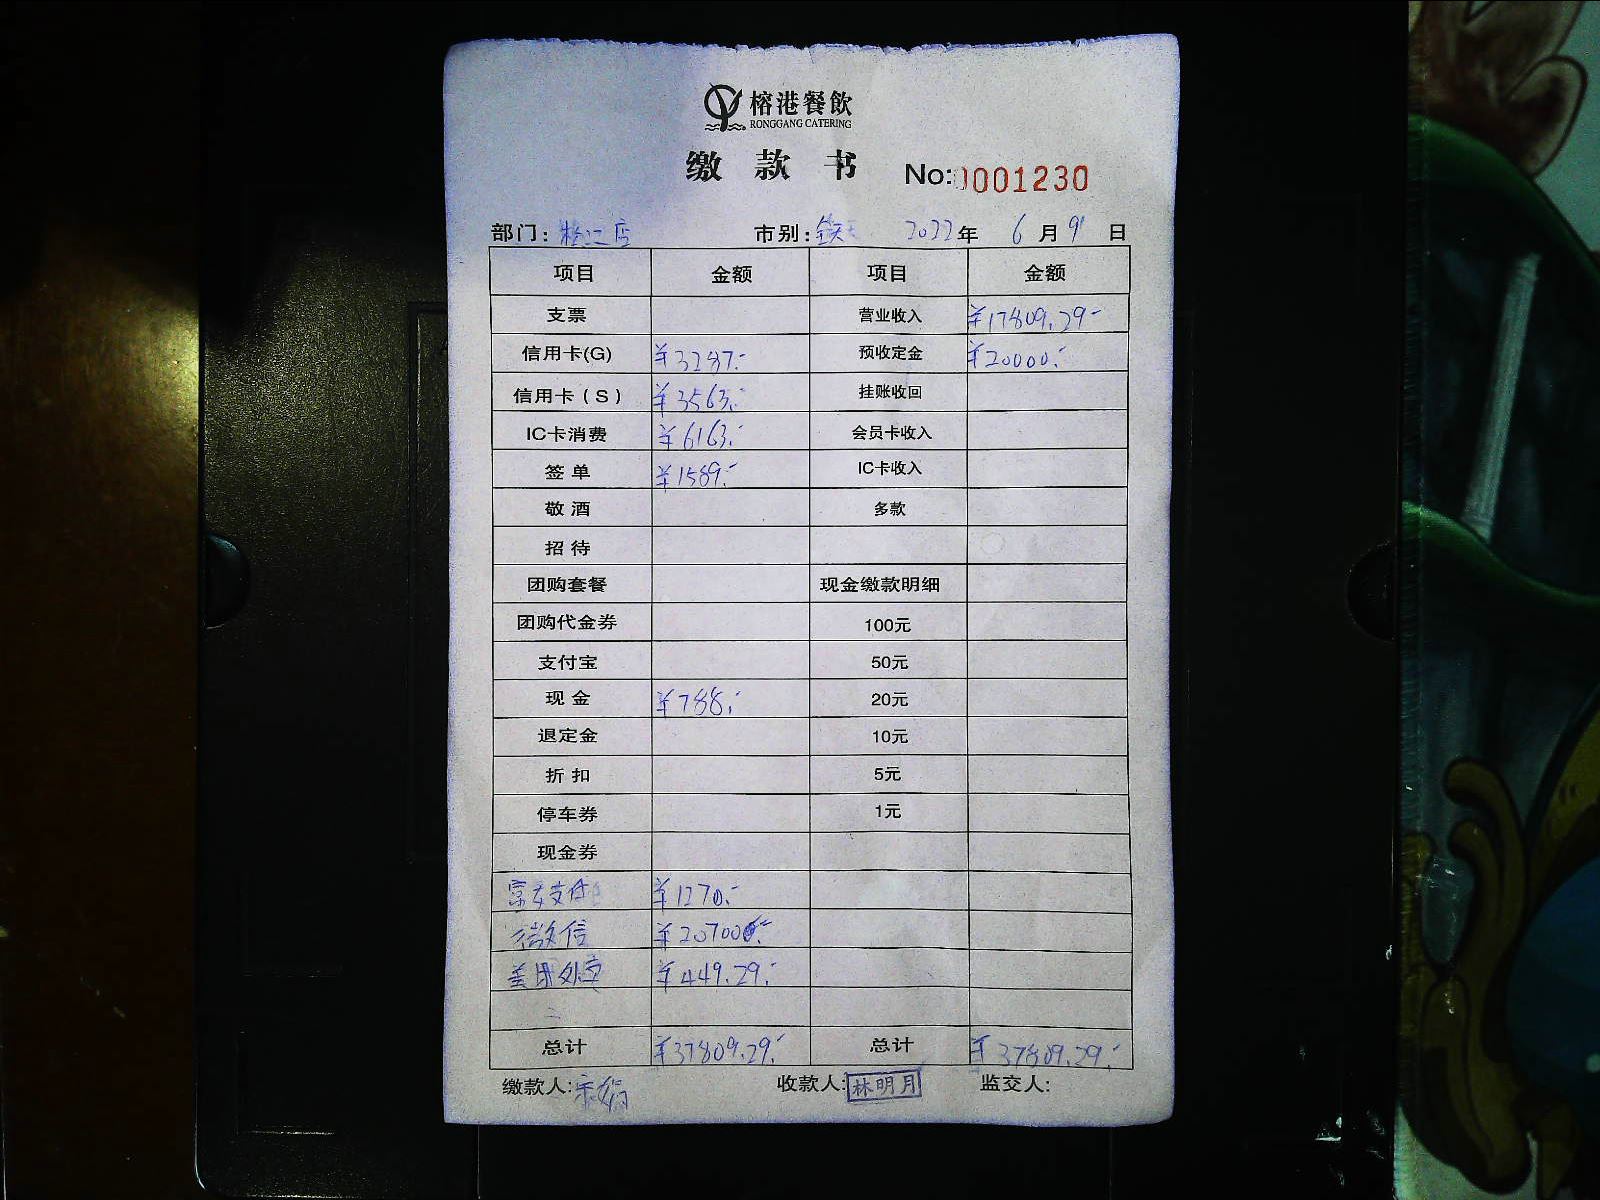 榕港餐飲
RONGGANG CATERING
缴款书 No:0001230
部门：松江店 市别： 2022年 6月 9日
项目 金额 项目 金额
支票 营业收入 ¥17809.29-
信用卡(G) ¥3287.- 预收定金 ¥20000.-
信用卡（S） ¥3563.- 挂账收回
IC卡消费 ¥6163.- 会员卡收入
签单 ¥1589.- IC卡收入
敬酒 多款
招待
团购套餐 现金缴款明细
团购代金券 100元
支付宝 50元
现金 ¥788.- 20元
退定金 10元
折扣 5元
停车券 1元
现金券
¥1270.-
微信 ¥20700.-
美团外卖 ¥449.29.-
总计 ¥37809.29.- 总计 ¥37809.29.-
缴款人: 收款人:林明月 监交人: